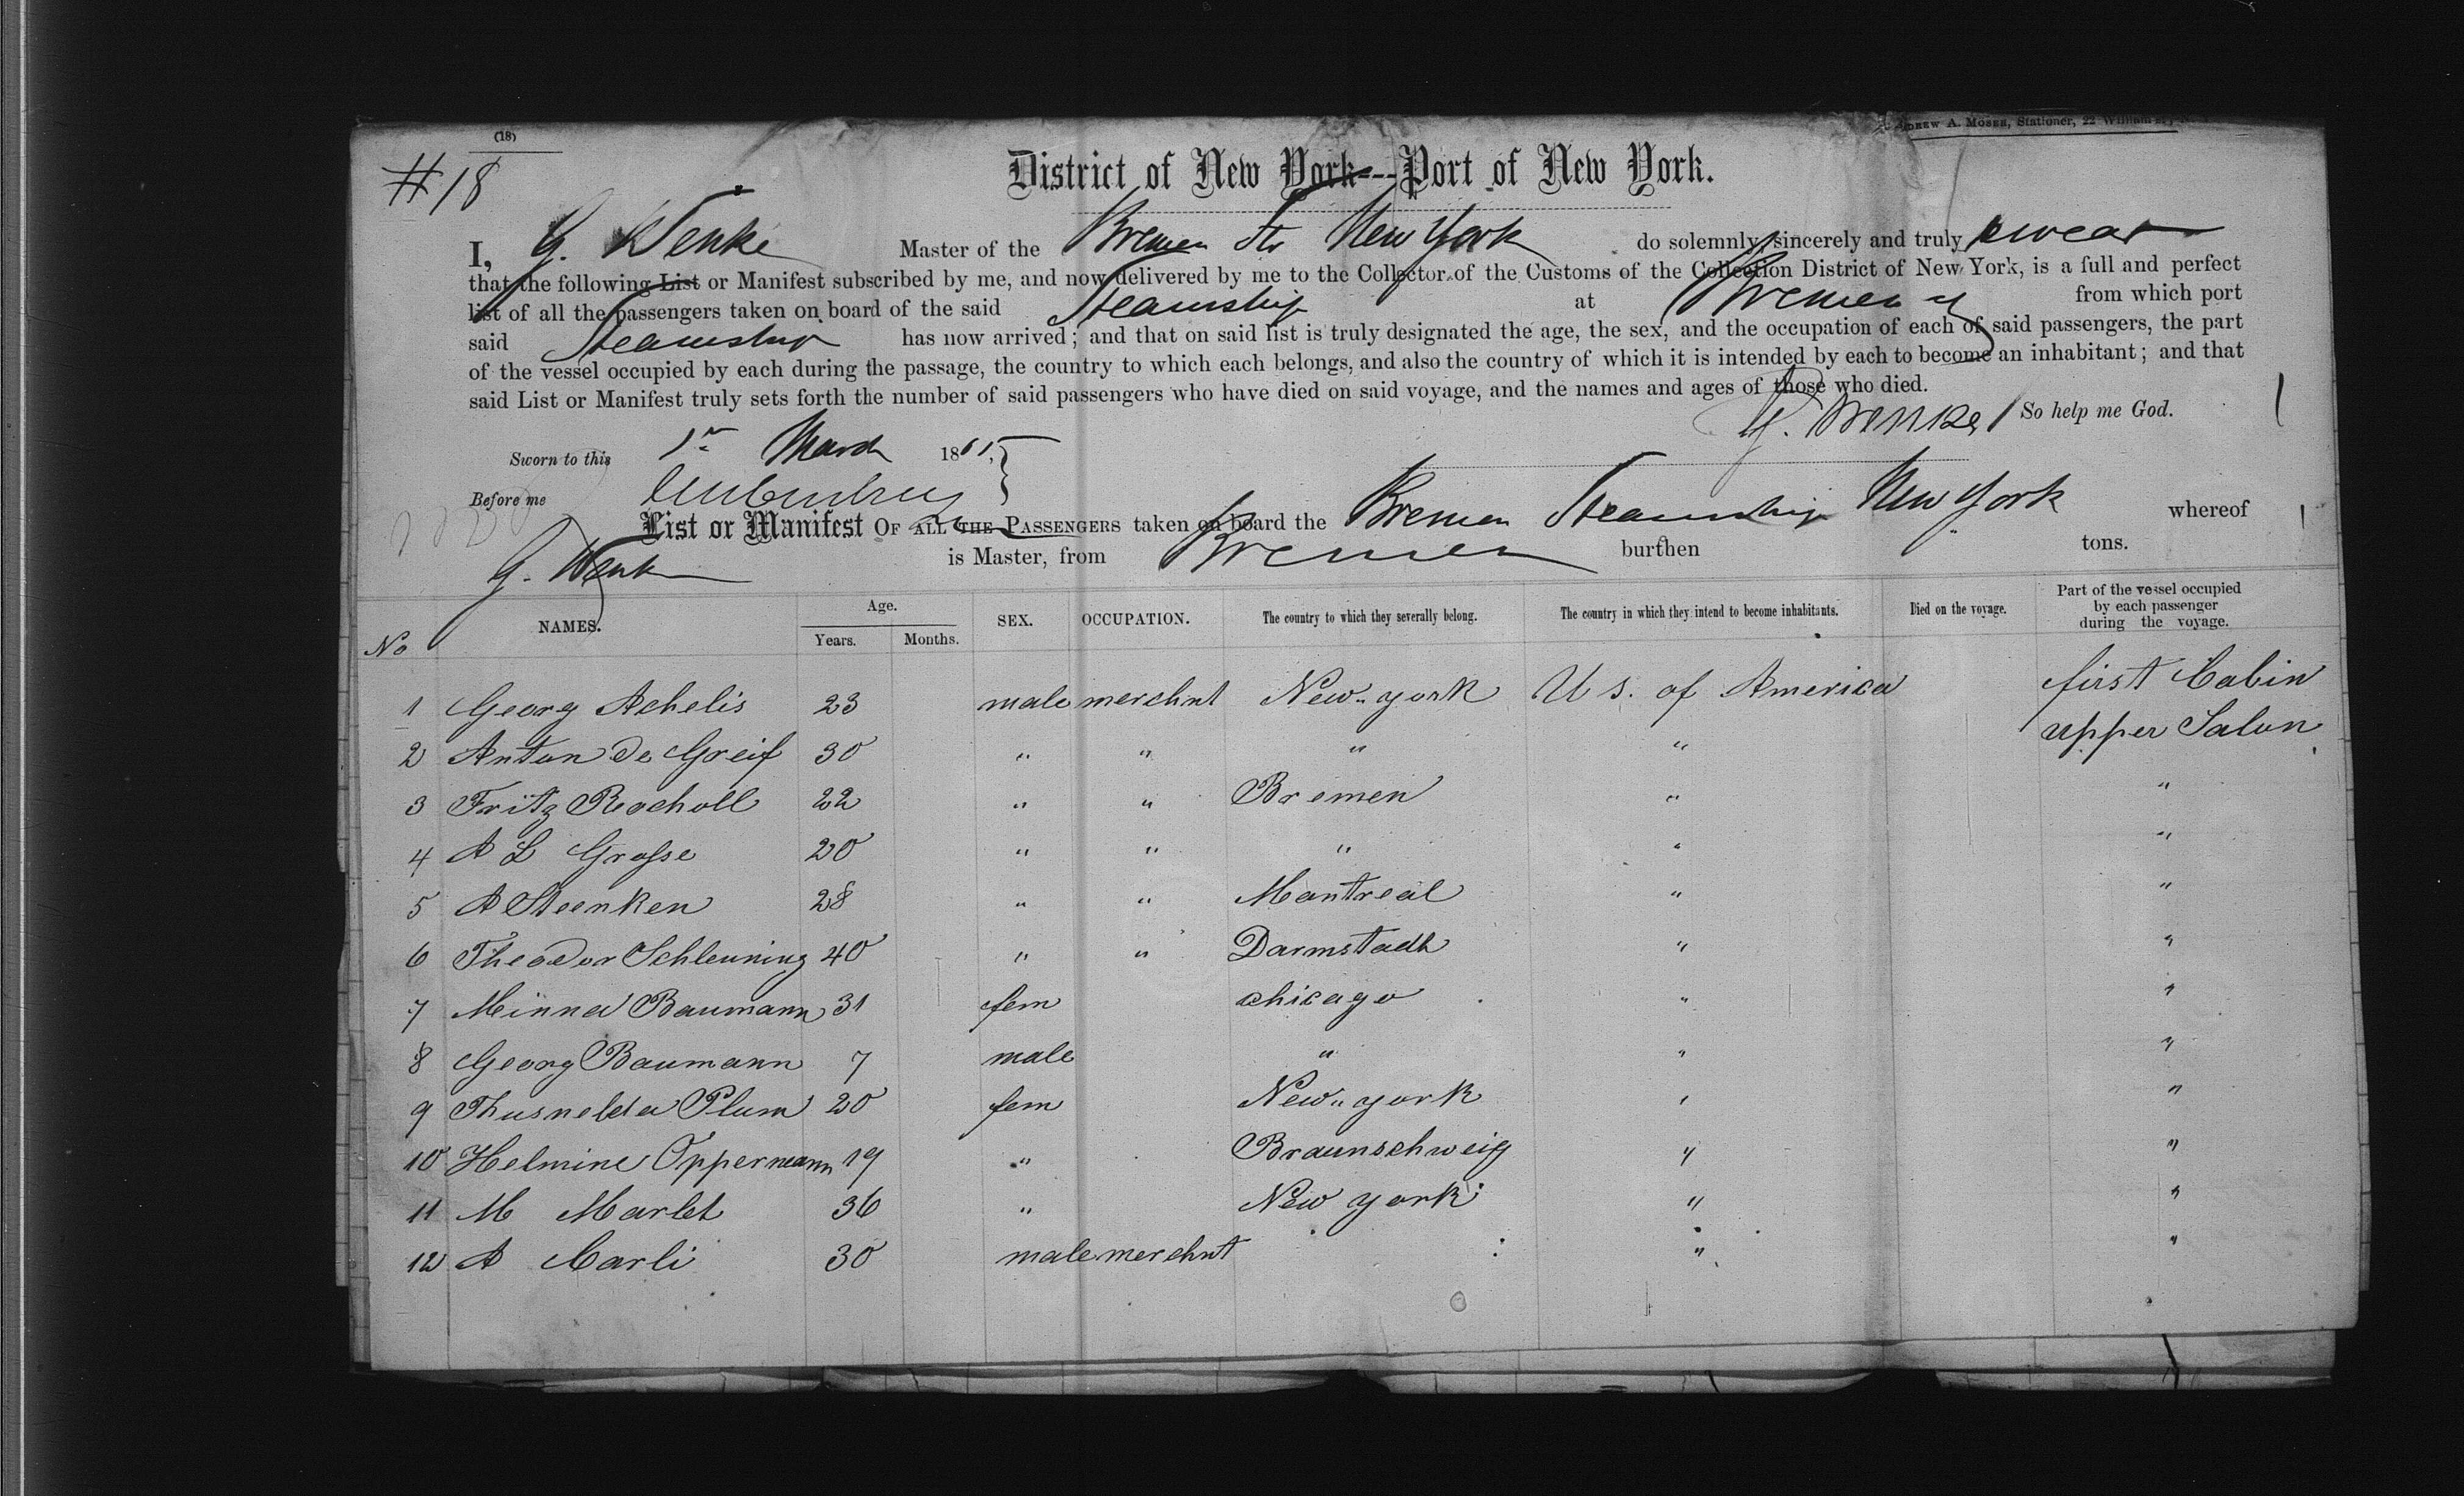 (18)
ANDREW A. MOSER, Stationer, 22 William
#18
District of New York---Port of New York.
I, G. Wenke Master of the Bremen Str New York do solemnly, sincerely and truly swear
that the following List or Manifest subscribed by me, and now delivered by me to the Collector of the Customs of the Collection District of New York, is a full and perfect
list of all the passengers taken on board of the said Steamship at Bremen from which port
said Steamship has now arrived; and that on said list is truly designated the age, the sex, and the occupation of each of said passengers, the part
of the vessel occupied by each during the passage, the country to which each belongs, and also the country of which it is intended by each to become an inhabitant; and that
said List or Manifest truly sets forth the number of said passengers who have died on said voyage, and the names and ages of those who died.
G. Wenke So help me God.
Sworn to this 1st March 1861,
Before me
List or Manifest OF ALL THE PASSENGERS taken on board the Bremen Steamship New York whereof
G. Wenke is Master, from Bremen burthen tons.
No NAMES. Age. Years. Months. SEX. OCCUPATION. The country to which they severally belong. The country in which they intend to become inhabitants. Died on the voyage. Part of the vessel occupied by each passenger during the voyage.
1 Georg Achelis 23 male merchnt New-york U S. of America first Cabin
upper Salon
2 Anton De Greif 30 " " " "
3 Fritz Rocholl 22 " " Bremen " "
4 A L Grosse 20 " " " " "
5 A Steenken 28 " " Montreal " "
6 Theodor Schleuning 40 " " Darmstadt " "
7 Minna Baumann 31 fem chicago " "
8 Georg Baumann 7 male " " "
9 Thusnelda Plum 20 fem New-york " "
10 Helmine Oppermann 19 " Braunschweig " "
11 M Marlet 36 " New york " "
12 A Carli 30 male merchnt " "